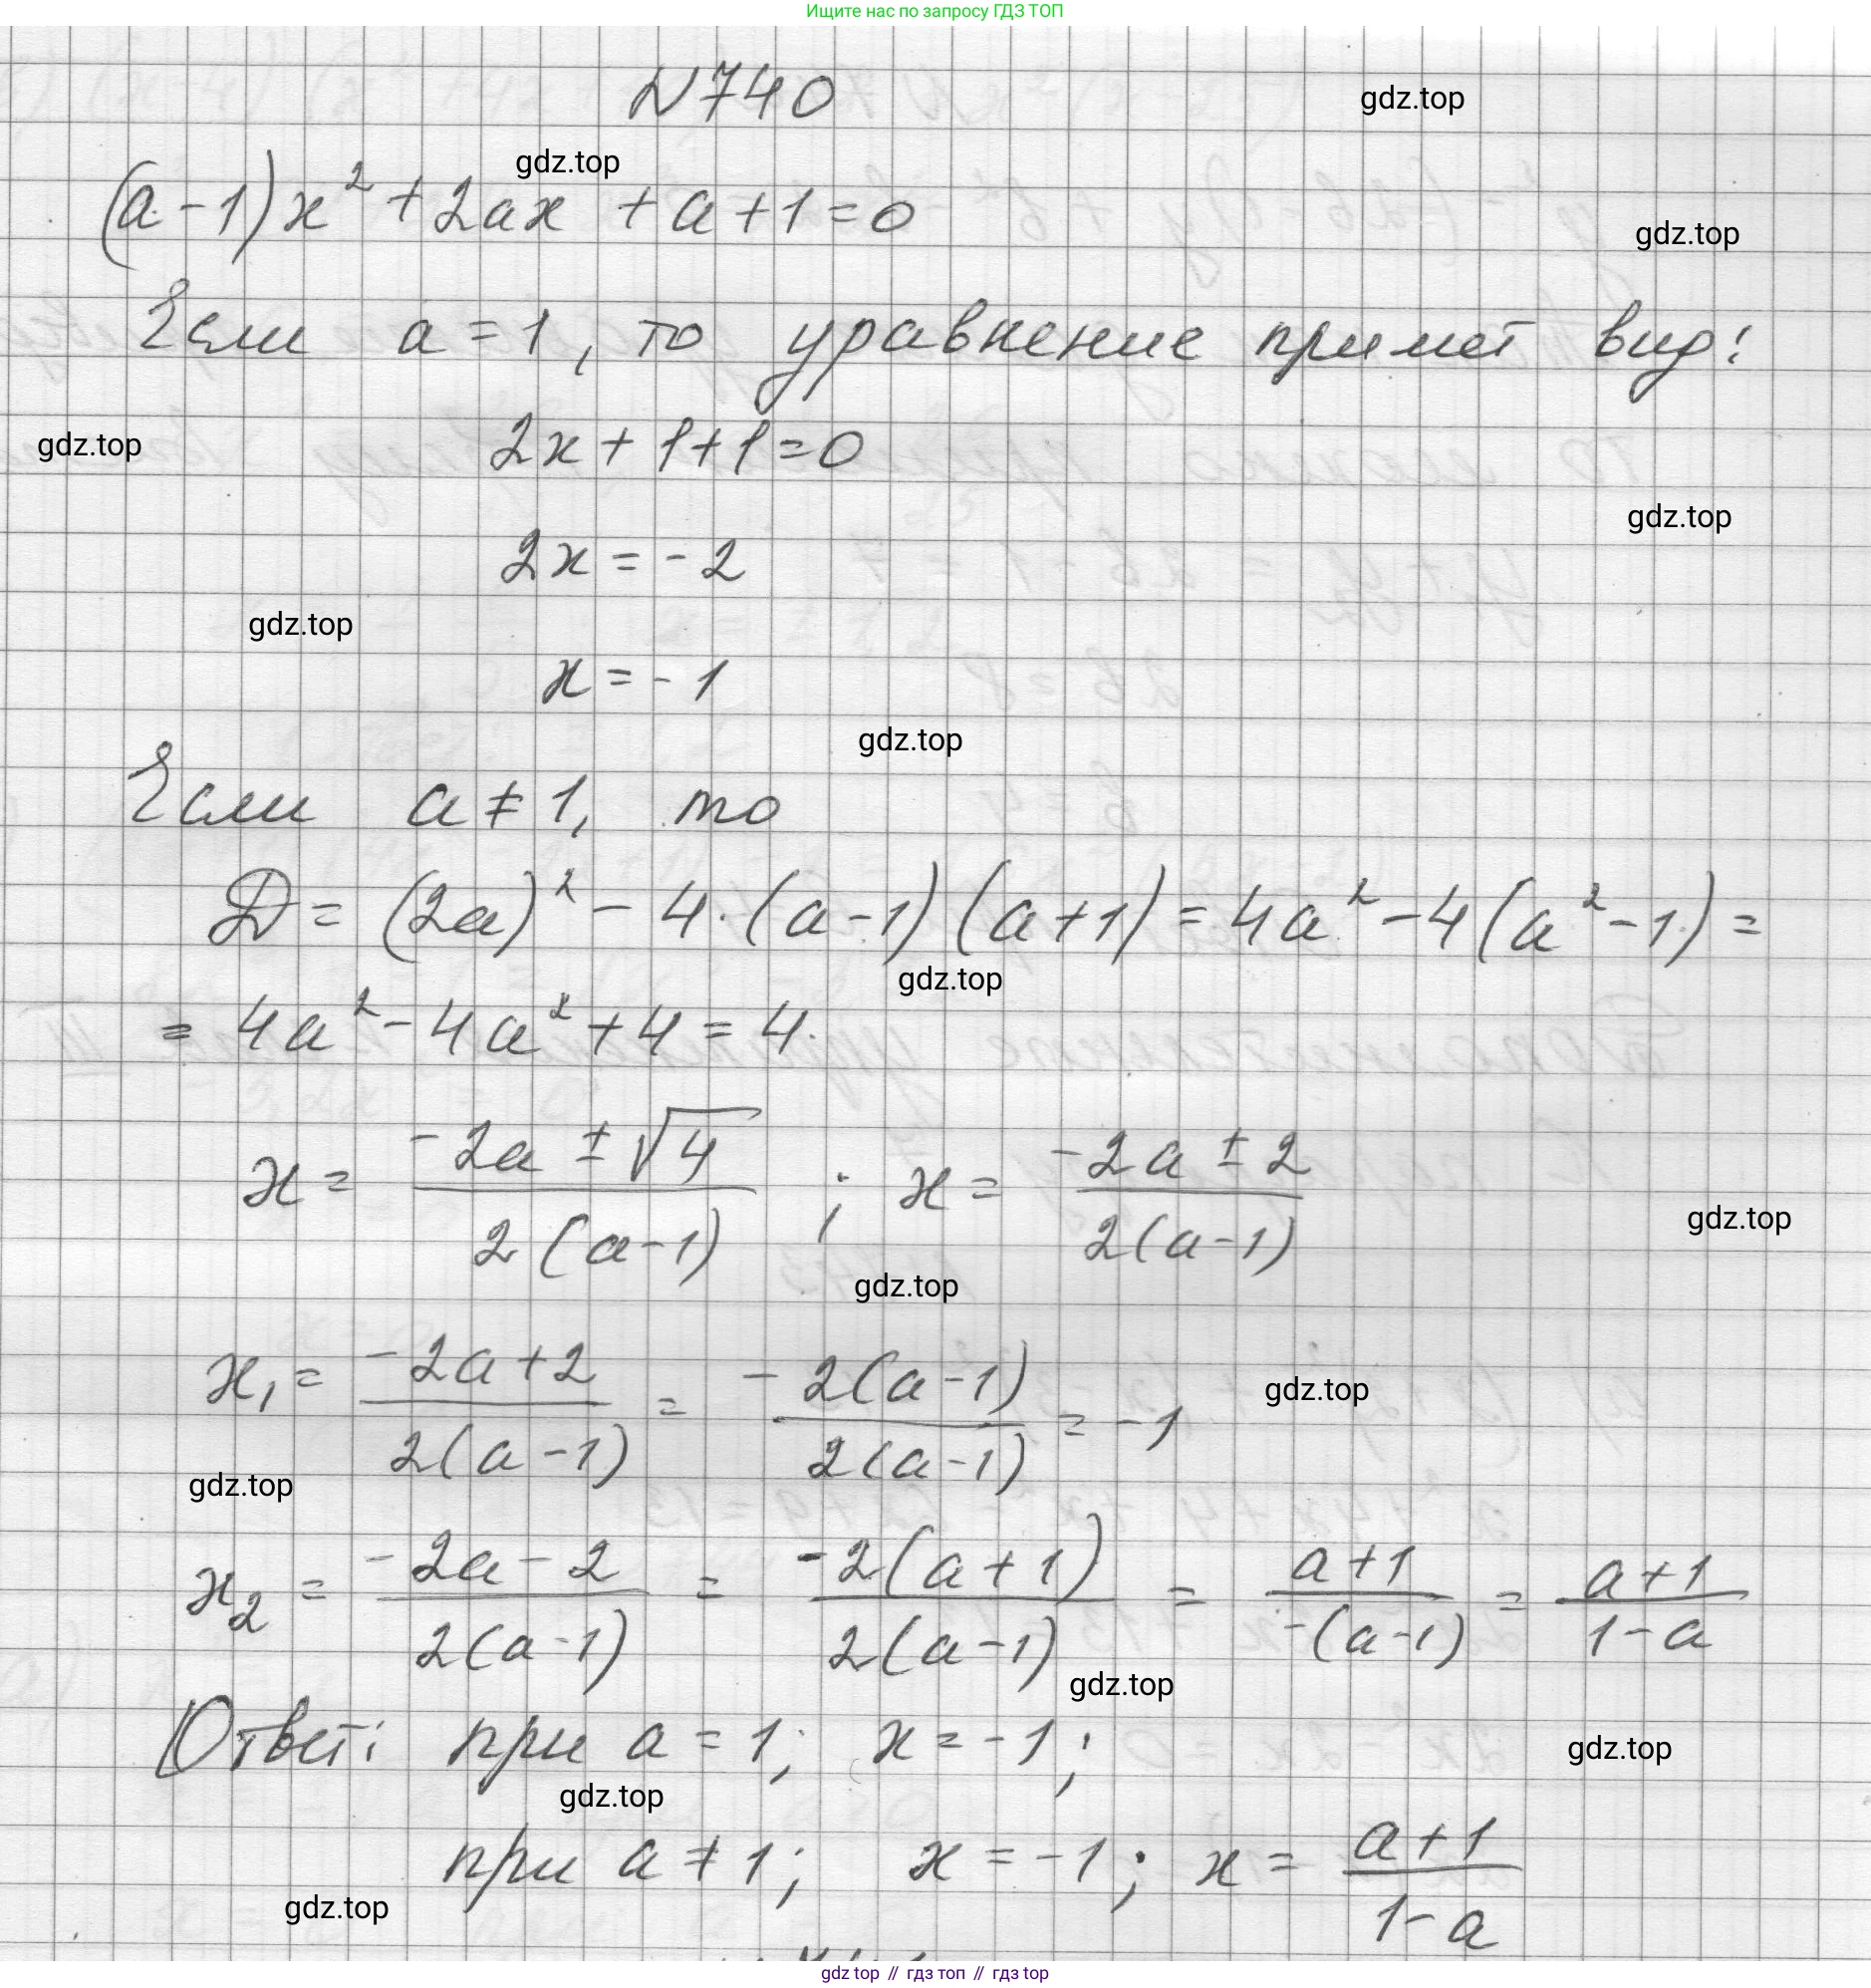 Ищите нас по запросу ГДЗ ТОП
N740
gdz.top
gdz.top
(a-1)x² + 2ax + a + 1 = 0
gdz.top
Если a = 1, то уравнение примет вид:
2x + 1 + 1 = 0
gdz.top
gdz.top
2x = -2
gdz.top
x = -1
gdz.top
Если a ≠ 1, то
D = (2a)² - 4·(a-1)(a+1) = 4a² - 4(a²-1) =
gdz.top
= 4a² - 4a² + 4 = 4.
x = (-2a ± √4)/(2(a-1)) ; x = (-2a ± 2)/(2(a-1))
gdz.top
gdz.top
x₁ = (-2a+2)/(2(a-1)) = -2(a-1)/(2(a-1)) = -1
gdz.top
gdz.top
x₂ = (-2a-2)/(2(a-1)) = -2(a+1)/(2(a-1)) = (a+1)/(-(a-1)) = (a+1)/(1-a)
gdz.top
Ответ: при a = 1; x = -1;
gdz.top
gdz.top
при a ≠ 1; x = -1; x = (a+1)/(1-a)
gdz.top
gdz top // гдз топ // gdz top